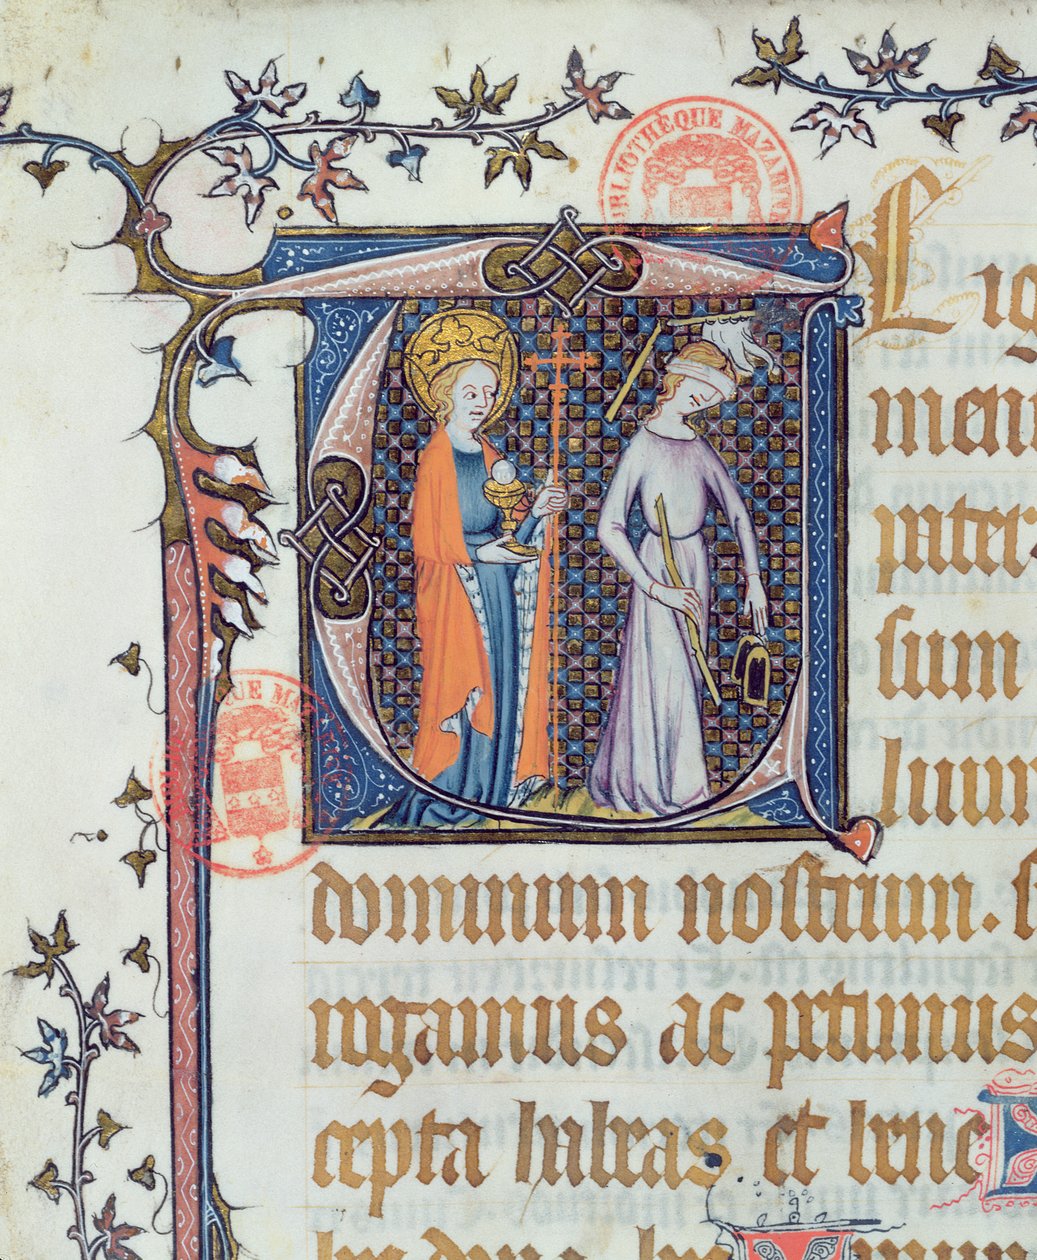 BIBLIOTHÈQUE MAZARINE
TE ig
men
pater
sum
lium
dominum nostrum. s
rogamus ac petimus
cepta habeas et bene